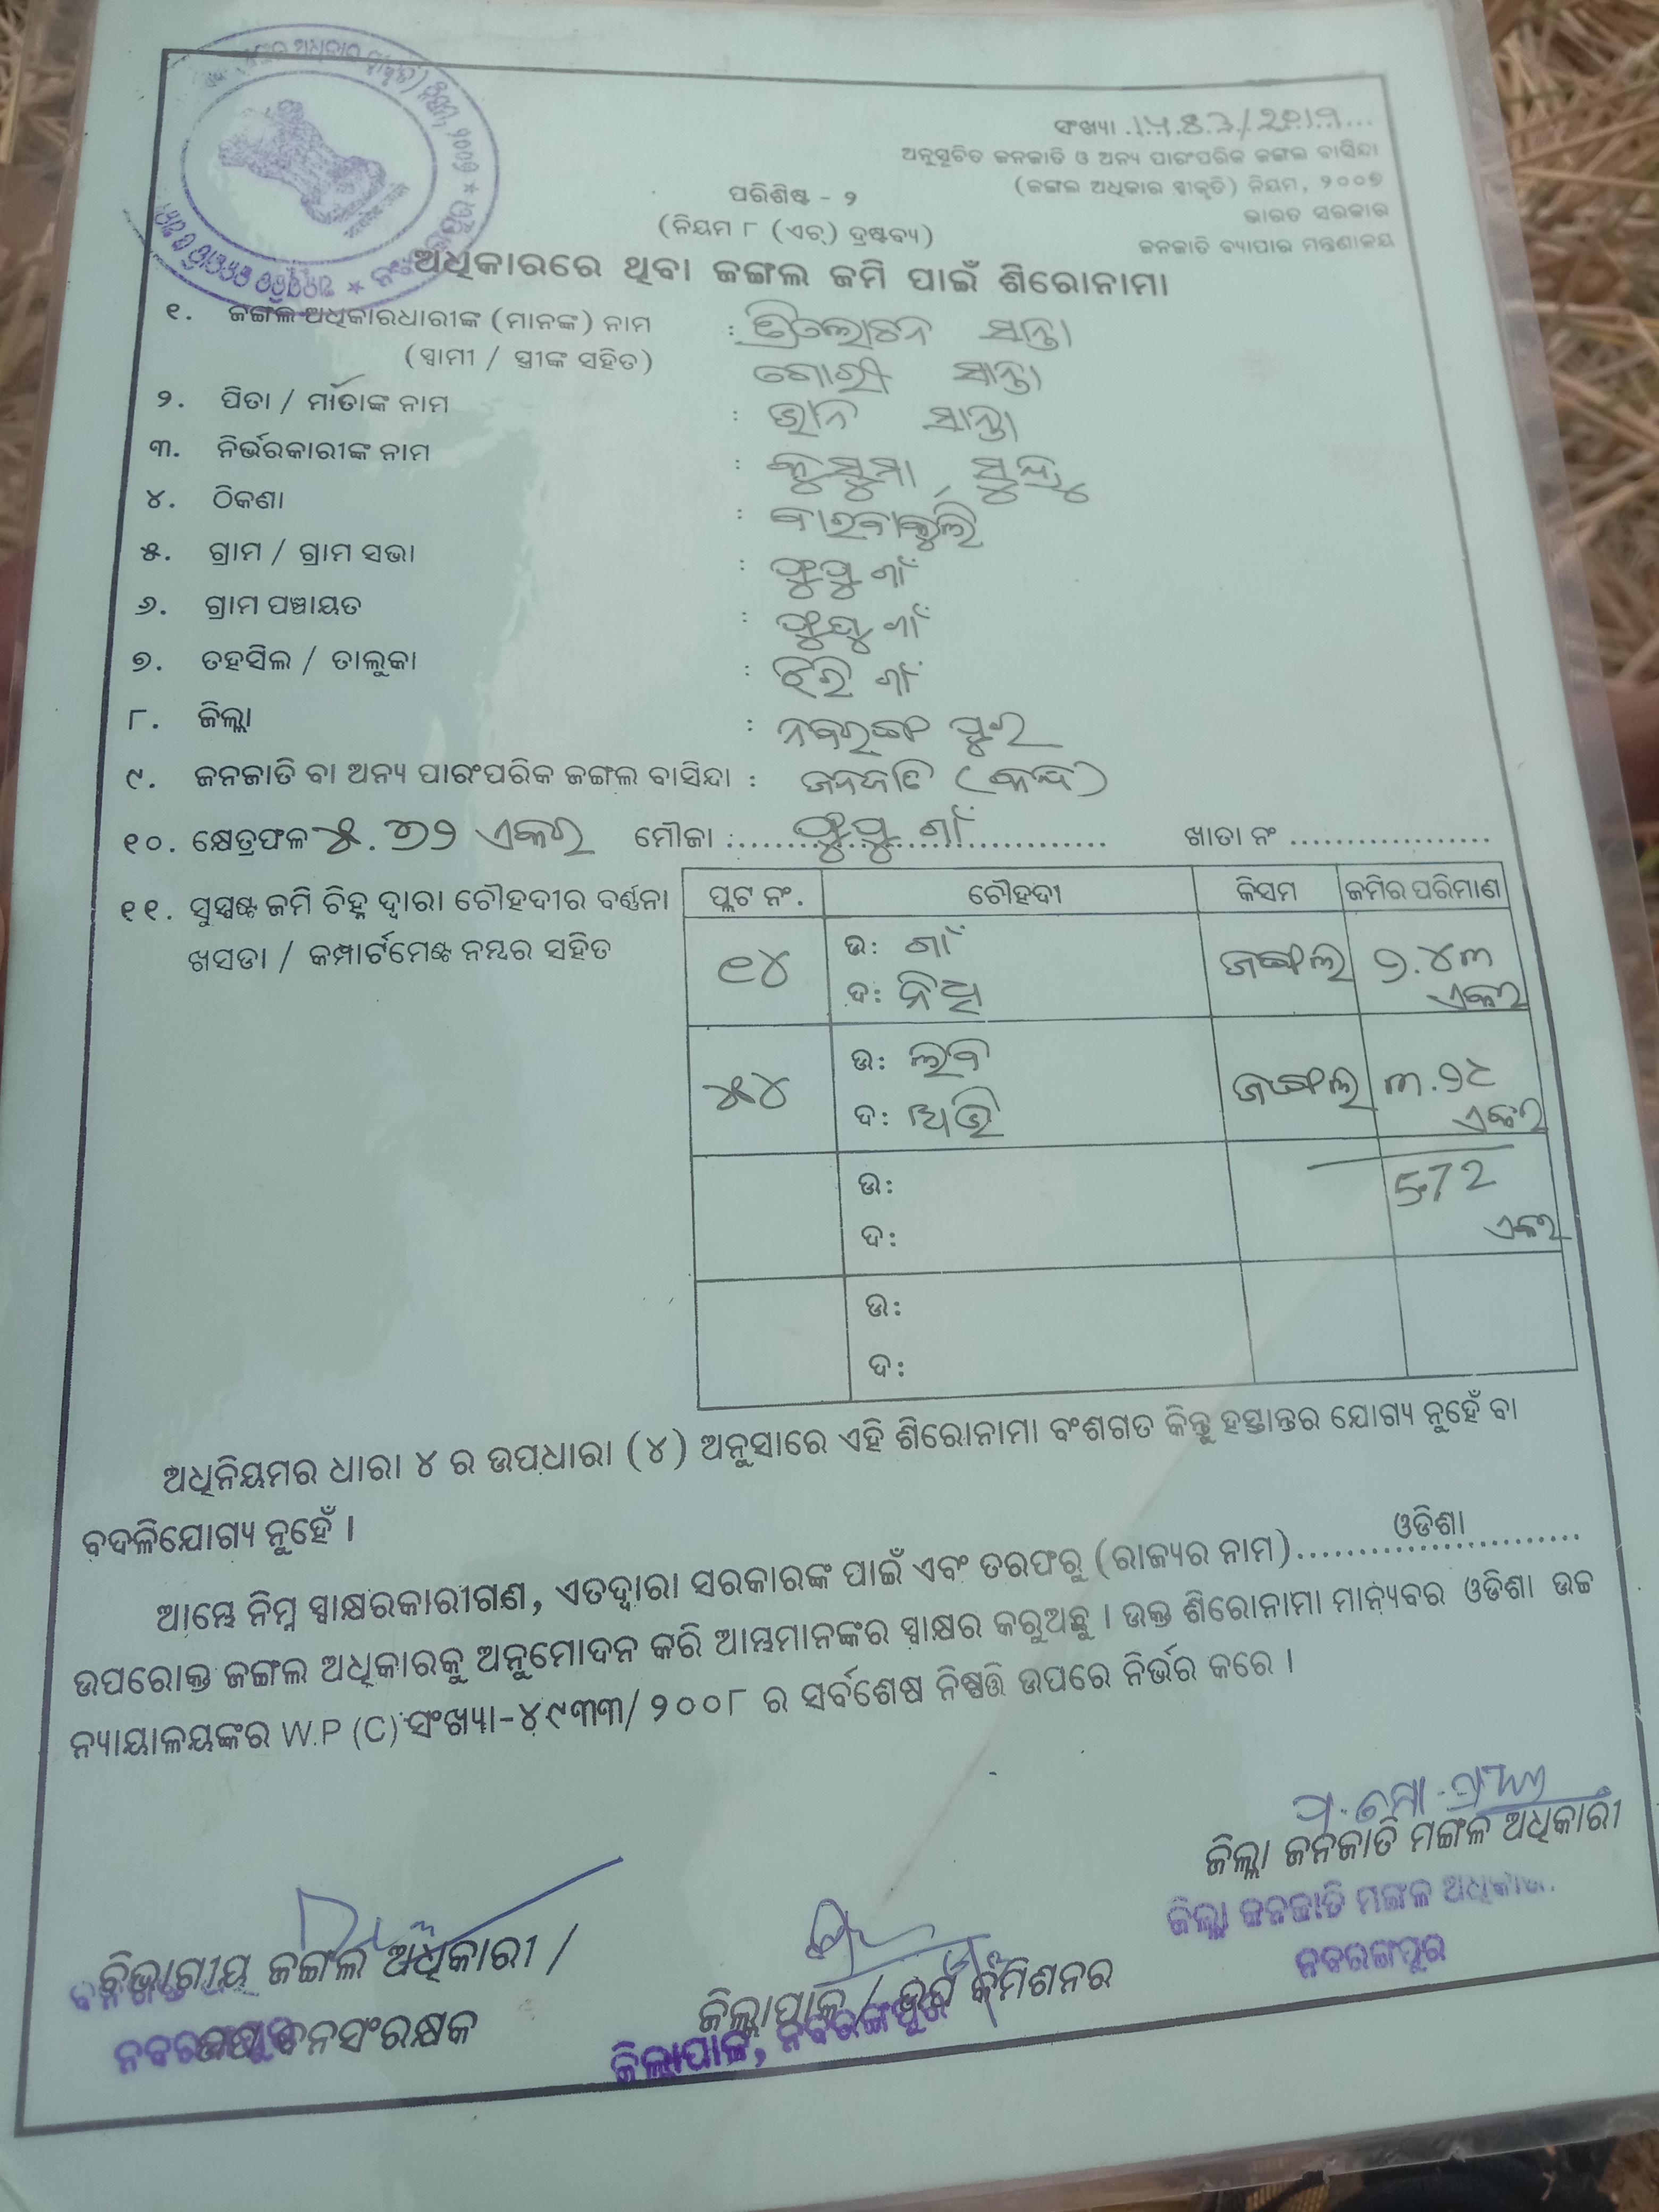 ସଂଖ୍ୟା
ଅନୁସୂଚିତ ଜନଜାତି ଓ ଅନ୍ୟ ପାରଂପରିକ ଜଙ୍ଗଲ ବାସିନ୍ଦା
(ଜଙ୍ଗଲ ଅଧିକାର ସ୍ୱୀକୃତି) ନିୟମ, ୨୦୦୭
ଭାରତ ସରକାର
ଜନଜାତି ବ୍ୟାପାର ମନ୍ତ୍ରଣାଳୟ
ପରିଶିଷ୍ଟ - ୨
(ନିୟମ ୮ (ଏଚ୍) ଦ୍ରଷ୍ଟବ୍ୟ)
ଅଧିକାରରେ ଥିବା ଜଙ୍ଗଲ ଜମି ପାଇଁ ଶିରୋନାମା
୧. ଜଙ୍ଗଲ ଅଧିକାରଧାରୀଙ୍କ (ମାନଙ୍କ) ନାମ : ତ୍ରିଲୋଚନ ସାନ୍ତା
(ସ୍ୱାମୀ / ସ୍ତ୍ରୀଙ୍କ ସହିତ) ଗୋରୀ ସାନ୍ତା
୨. ପିତା / ମାତାଙ୍କ ନାମ : ଭାନ ସାନ୍ତା
୩. ନିର୍ଭରକାରୀଙ୍କ ନାମ : କୁସୁମା
୪. ଠିକଣା :
୫. ଗ୍ରାମ / ଗ୍ରାମ ସଭା : ଫୁପୁଗାଁ
୬. ଗ୍ରାମ ପଞ୍ଚାୟତ : ଫୁପୁଗାଁ
୭. ତହସିଲ / ତାଲୁକା : ଝରିଗାଁ
୮. ଜିଲ୍ଲା : ନବରଙ୍ଗପୁର
୯. ଜନଜାତି ବା ଅନ୍ୟ ପାରଂପରିକ ଜଙ୍ଗଲ ବାସିନ୍ଦା : ଜନଜାତି (କନ୍ଧ)
୧୦. କ୍ଷେତ୍ରଫଳ ୫.୭୨ ଏକର ମୌଜା : ଫୁପୁଗାଁ ଖାତା ନଂ
୧୧. ସୁସ୍ପଷ୍ଟ ଜମି ଚିହ୍ନ ଦ୍ୱାରା ଚୌହଦୀର ବର୍ଣ୍ଣନା
ଖସଡା / କମ୍ପାର୍ଟମେଣ୍ଟ ନମ୍ବର ସହିତ
ପ୍ଲଟ ନଂ. ଚୌହଦୀ କିସମ ଜମିର ପରିମାଣ
୧୪ ଉ: ଗାଁ ଜଙ୍ଗଲ ୨.୪୩
ଦ: ନିଧି ଏକର
୫୪ ଉ: ଲବ ଜଙ୍ଗଲ ୩.୨୯
ଦ: ଅଭି ଏକର
ଉ: 5.72
ଦ: ଏକର
ଉ:
ଦ:
ଅଧିନିୟମର ଧାରା ୪ ର ଉପଧାରା (୪) ଅନୁସାରେ ଏହି ଶିରୋନାମା ବଂଶଗତ କିନ୍ତୁ ହସ୍ତାନ୍ତର ଯୋଗ୍ୟ ନୁହେଁ ବା
ବଦଳିଯୋଗ୍ୟ ନୁହେଁ ।
ଆମ୍ଭେ ନିମ୍ନ ସ୍ୱାକ୍ଷରକାରୀଗଣ, ଏତଦ୍ଵାରା ସରକାରଙ୍କ ପାଇଁ ଏବଂ ତରଫରୁ (ରାଜ୍ୟର ନାମ) ଓଡିଶା
ଉପରୋକ୍ତ ଜଙ୍ଗଲ ଅଧିକାରକୁ ଅନୁମୋଦନ କରି ଆମ୍ଭମାନଙ୍କର ସ୍ୱାକ୍ଷର କରୁଅଛୁ । ଉକ୍ତ ଶିରୋନାମା ମାନ୍ୟବର ଓଡିଶା ଉଚ୍ଚ
ନ୍ୟାୟାଳୟଙ୍କର W.P (C) ସଂଖ୍ୟା-୪୯୩୩/୨୦୦୮ ର ସର୍ବଶେଷ ନିଷ୍ପତ୍ତି ଉପରେ ନିର୍ଭର କରେ ।
ଜିଲ୍ଲା ଜନଜାତି ମଙ୍ଗଳ ଅଧିକାରୀ
ଜିଲ୍ଲା ଜନଜାତି ମଙ୍ଗଳ ଅଧିକାରୀ
ନବରଙ୍ଗପୁର
ବିଭାଗୀୟ ଜଙ୍ଗଲ ଅଧିକାରୀ /
ଉପ ବନସଂରକ୍ଷକ
ଜିଲ୍ଲାପାଳ / ଉପ କମିଶନର
ଜିଲ୍ଲାପାଳ, ନବରଙ୍ଗପୁର